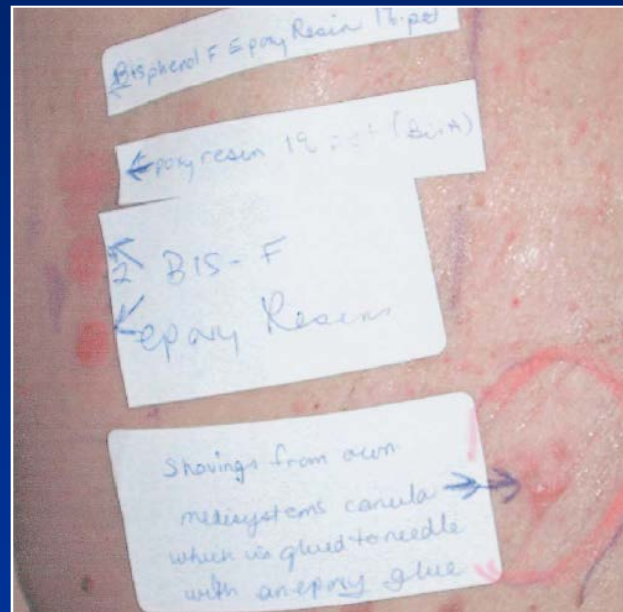 Bisphenol F Epoxy Resin 1% pet
Epoxy resin 1% pet (Bis A)
2 BIS-F
epoxy Resins
Shavings from own
medisystems canula
which is glued to needle
with an epoxy glue